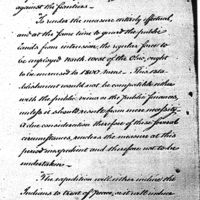 against the frontiers.
To render the measure entirely effectual,
and at the same time to guard the public
lands from intrusion, the regular force to
be employed north west of the Ohio, ought
to be increased to 1800 men. This esta-
blishment would not be compatible either
with the public views or the public finances,
unless it should result from mere necessity.
A due consideration therefore of these
circumstances, renders the measure at this
period inexpedient and therefore not to be
undertaken.
The expedition will either induce the
Indians to treat of peace, or it will induce